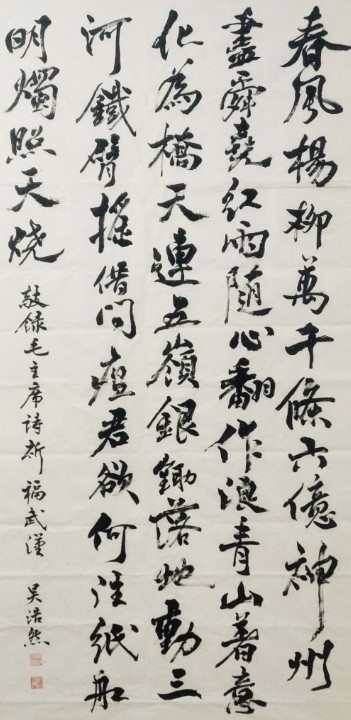 春風楊柳萬千條六億神州
盡舜堯紅雨隨心翻作浪青山著意
化為橋天連五嶺銀鋤落地動三
河鐵臂搖借問瘟君欲何往紙船
明燭照天烧
敬録毛主席詩祈福武漢 吴浩然